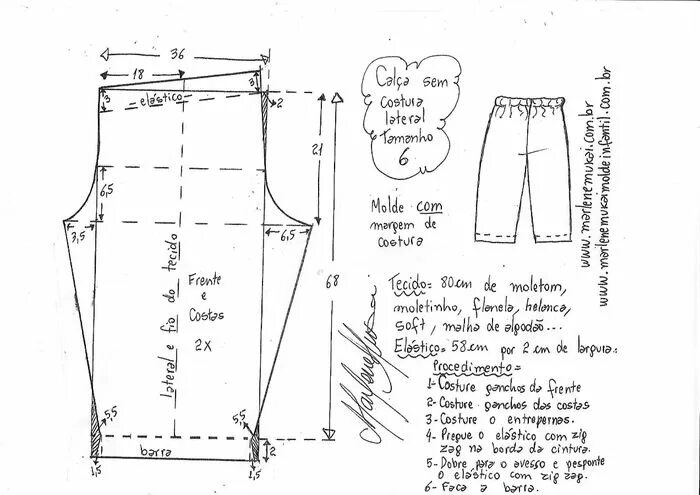 36
18
3
elástico
3
2
21
6,5
3,5
6,5
68
lateral e fio do tecido
Frente
e
Costas
2X
5,5
5,5
barra
2
1,5
1,5
Calça sem
costura
lateral
Tamanho
6
Molde com
margem de
costura
www.marlenemukai.com.br
www.marlenemukaimoldeinfantil.com.br
Tecido= 80cm de moletom,
moletinho, flanela, helanca,
soft, malha de algodão...
Elástico= 58cm por 2 cm de largura.
Procedimento=
1- Costure ganchos da frente
2- Costure ganchos das costas
3- Costure o entrepernas.
4- Pregue o elástico com zig
zag na borda da cintura.
5- Dobre para o avesso e pesponte
o elástico com zig zag.
6- Faça a barra.